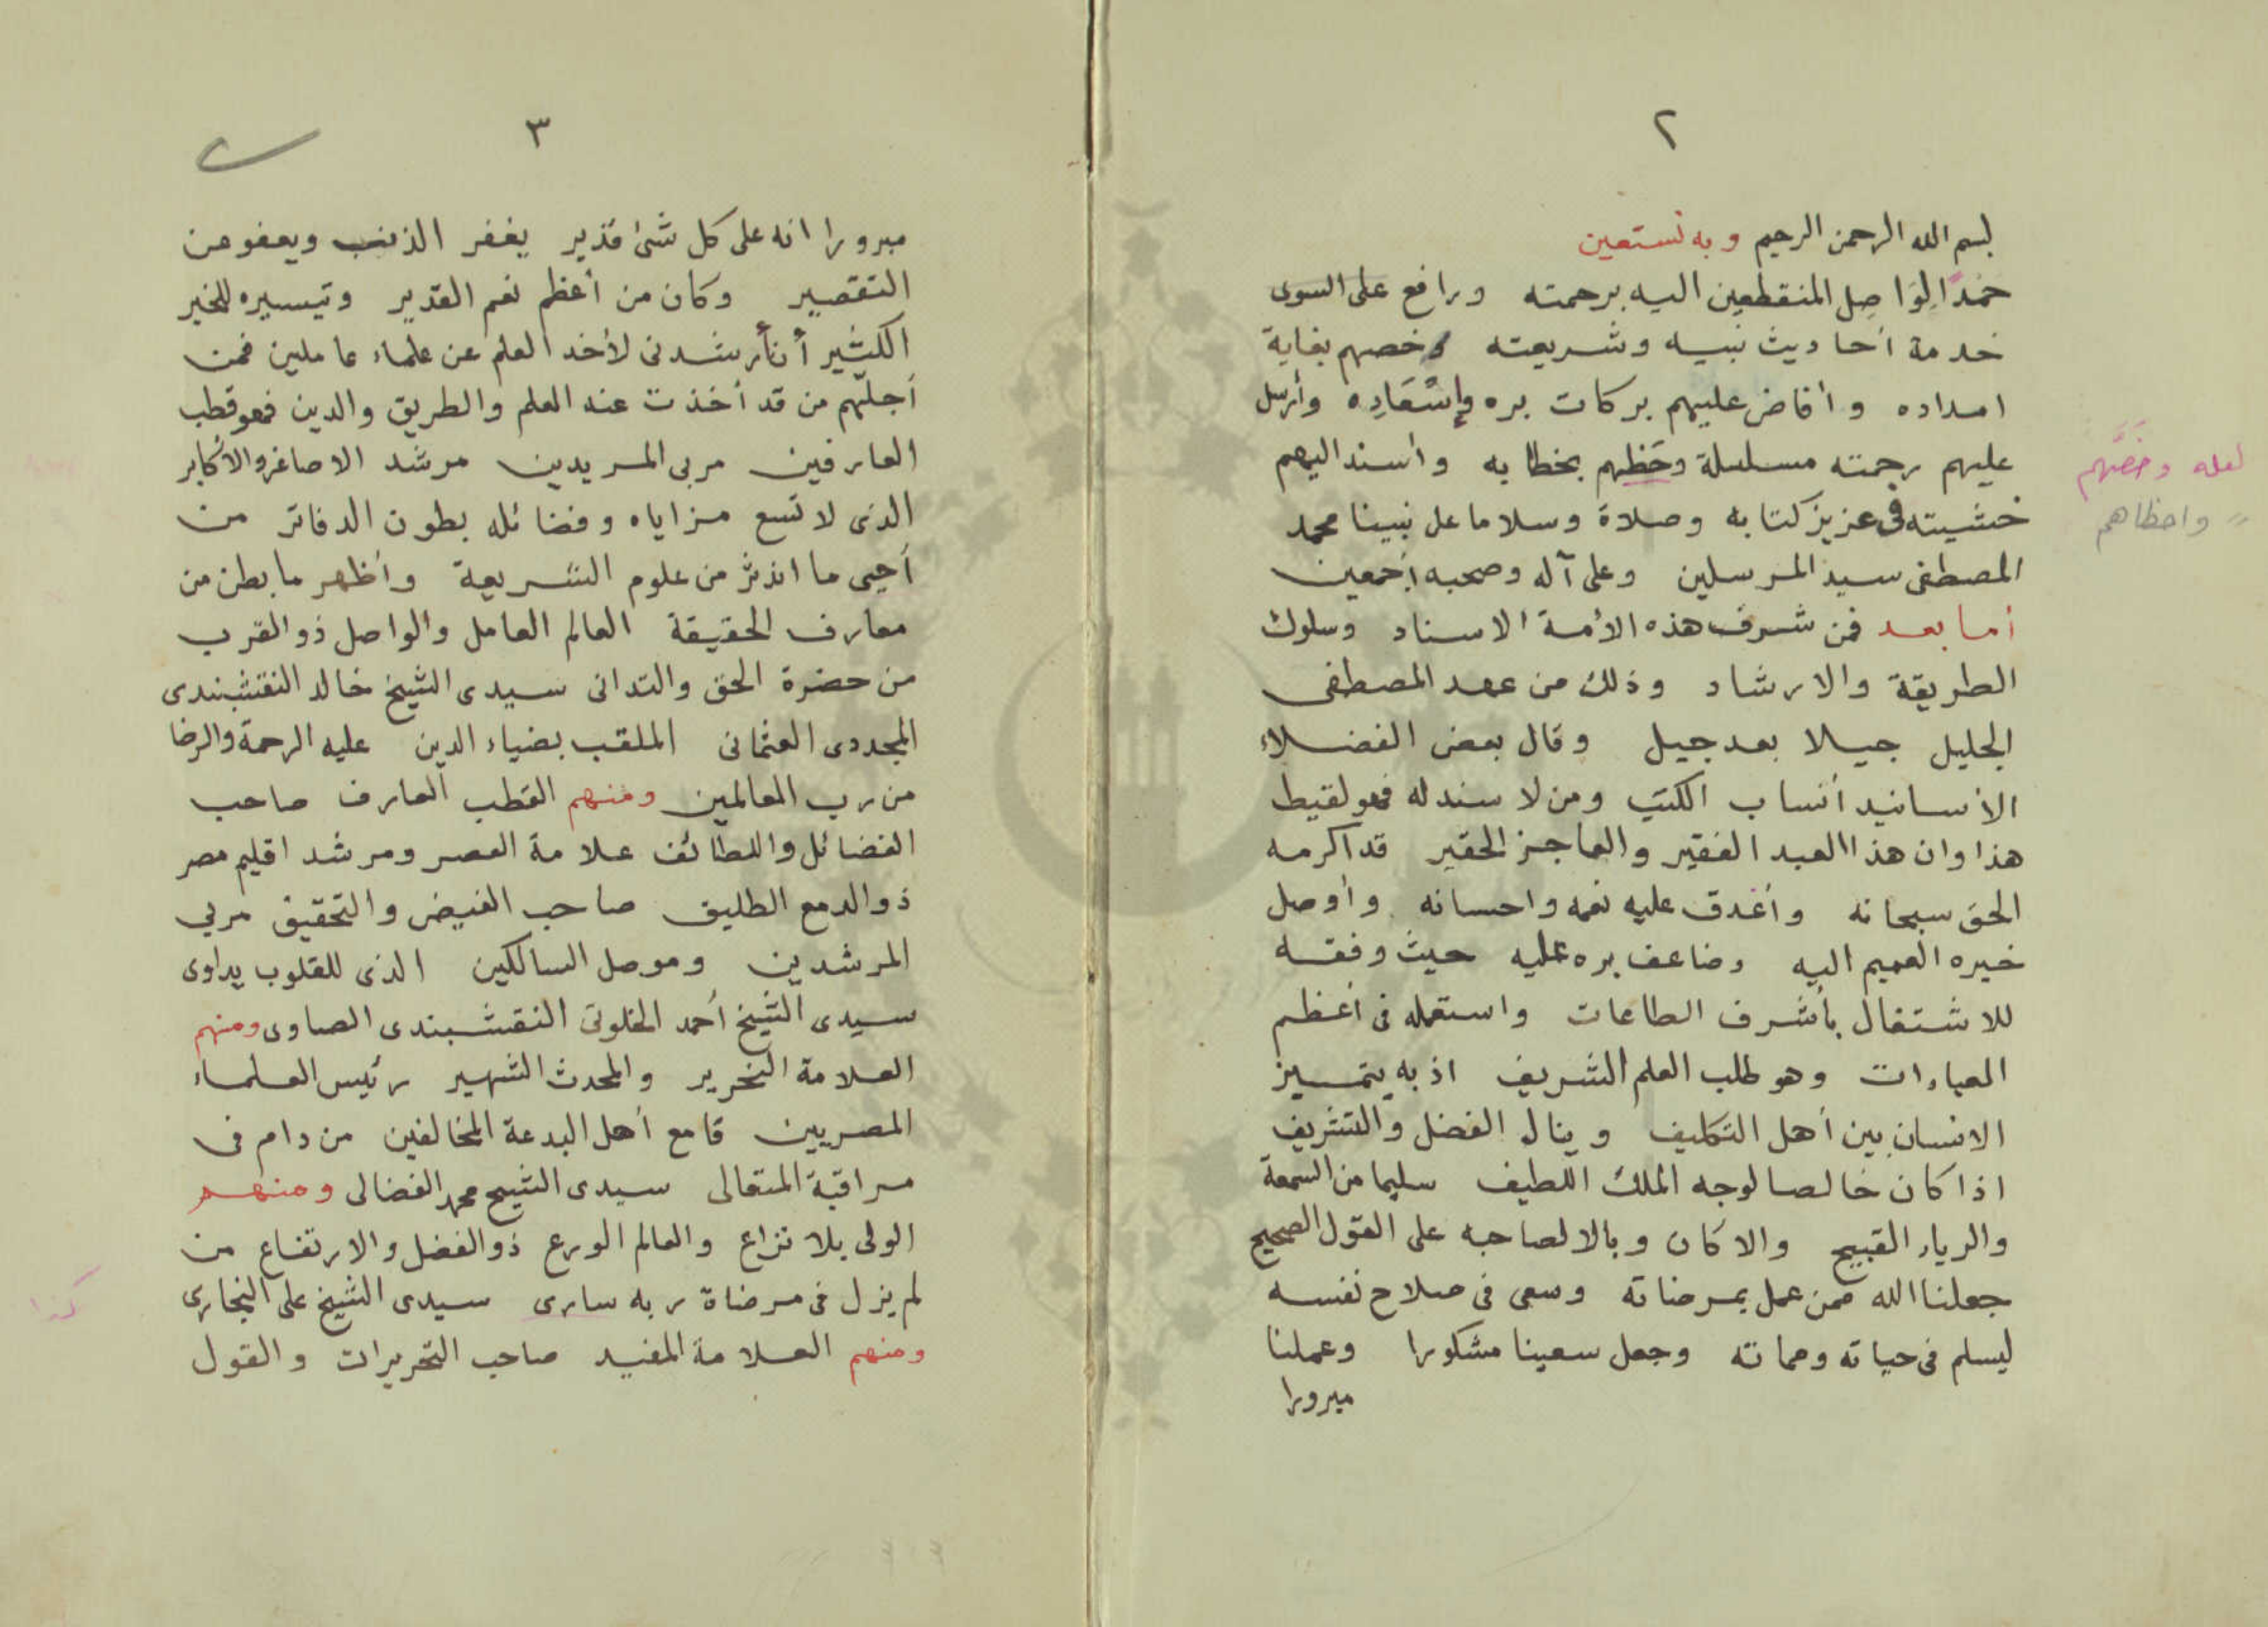 ٢
بسم الله الرحمن الرحيم وبه نستعين
حمدًا لِوَاصِل المنقطعين اليه برحمته ورافع على السوى
خدمة أحاديث نبيه وشريعته وخصهم بغاية
امداده وأفاض عليهم بركات بره وإسْعَادِه وأرسل
عليهم رحمته مسلسلة وحَظهم بخطابه واسند اليهم
خشيته فى عزيز كتابه وصلاة وسلاما على نبينا محمد
المصطفى سيد المرسلين وعلى آله وصحبه أجمعين
أما بعد فمن شرف هذه الأمة الاسناد وسلوك
الطريقة والارشاد وذلك من عهد المصطفى
الجليل جيلا بعد جيل وقال بعض الفضلاء
الأسانيد أنساب الكتب ومن لا سند له فهو لقيط
هذا وان هذا العبد الفقير والعاجز الحقير قد أكرمه
الحق سبحانه وأغدق عليه نعمه واحسانه وأوصل
خيره العميم اليه وضاعف بره عليه حيث وفقه
للاشتغال بأشرف الطاعات واستعمله فى أعظم
العبادات وهو طلب العلم الشريف اذ به يتميز
الانسان بين أهل التكليف وينال الفضل والتشريف
اذا كان خالصا لوجه الملك اللطيف سليما من السمعة
والرياء القبيح والا كان وبالا لصاحبه على القول الصحيح
جعلنا الله ممن عمل بمرضاته وسعى فى صلاح نفسه
ليسلم فى حياته ومماته وجعل سعينا مشكورا وعملنا
مبرورا
لعله وخَصَّهم
〃 واحظاهم
٣
مبرورا انه على كل شئ قدير يغفر الذنب ويعفو عن
التقصير وكان من أعظم نعم القدير وتيسيره للخير
الكثير أن أرشدنى لأخذ العلم عن علماء عاملين فمن
أجلّهم من قد أخذت عنه العلم والطريق والدين فهو قطب
العارفين مربى المريدين مرشد الاصاغر والأكابر
الذى لا تسع مزاياه وفضائله بطون الدفاتر من
أحيى ما اندثر من علوم الشريعة وأظهر ما بطن من
معارف الحقيقة العالم العامل والواصل ذو القرب
من حضرة الحق والتدانى سيدى الشيخ خالد النقشبندى
المجددى العثمانى الملقب بضياء الدين عليه الرحمة والرضا
من رب العالمين ومنهم القطب العارف صاحب
الفضائل واللطائف علامة العصر ومرشد اقليم مصر
ذو الدمع الطليق صاحب الفيض والتحقيق مربي
المرشدين وموصل السالكين الذى للقلوب يداوى
سيدى الشيخ أحمد الخلوتى النقشبندى الصاوى ومنهم
العلامة النحرير والمحدث الشهير رئيس العلماء
المصريين قامع أهل البدعة المخالفين من دام فى
مراقبة المتعالى سيدى الشيخ محمد الفضالى ومنهم
الولى بلا نزاع والعالم الورع ذو الفضل والارتفاع من
لم يزل فى مرضاة ربه سارى سيدى الشيخ على البخارى
ومنهم العلامة المفيد صاحب التحريرات والقول
كذا